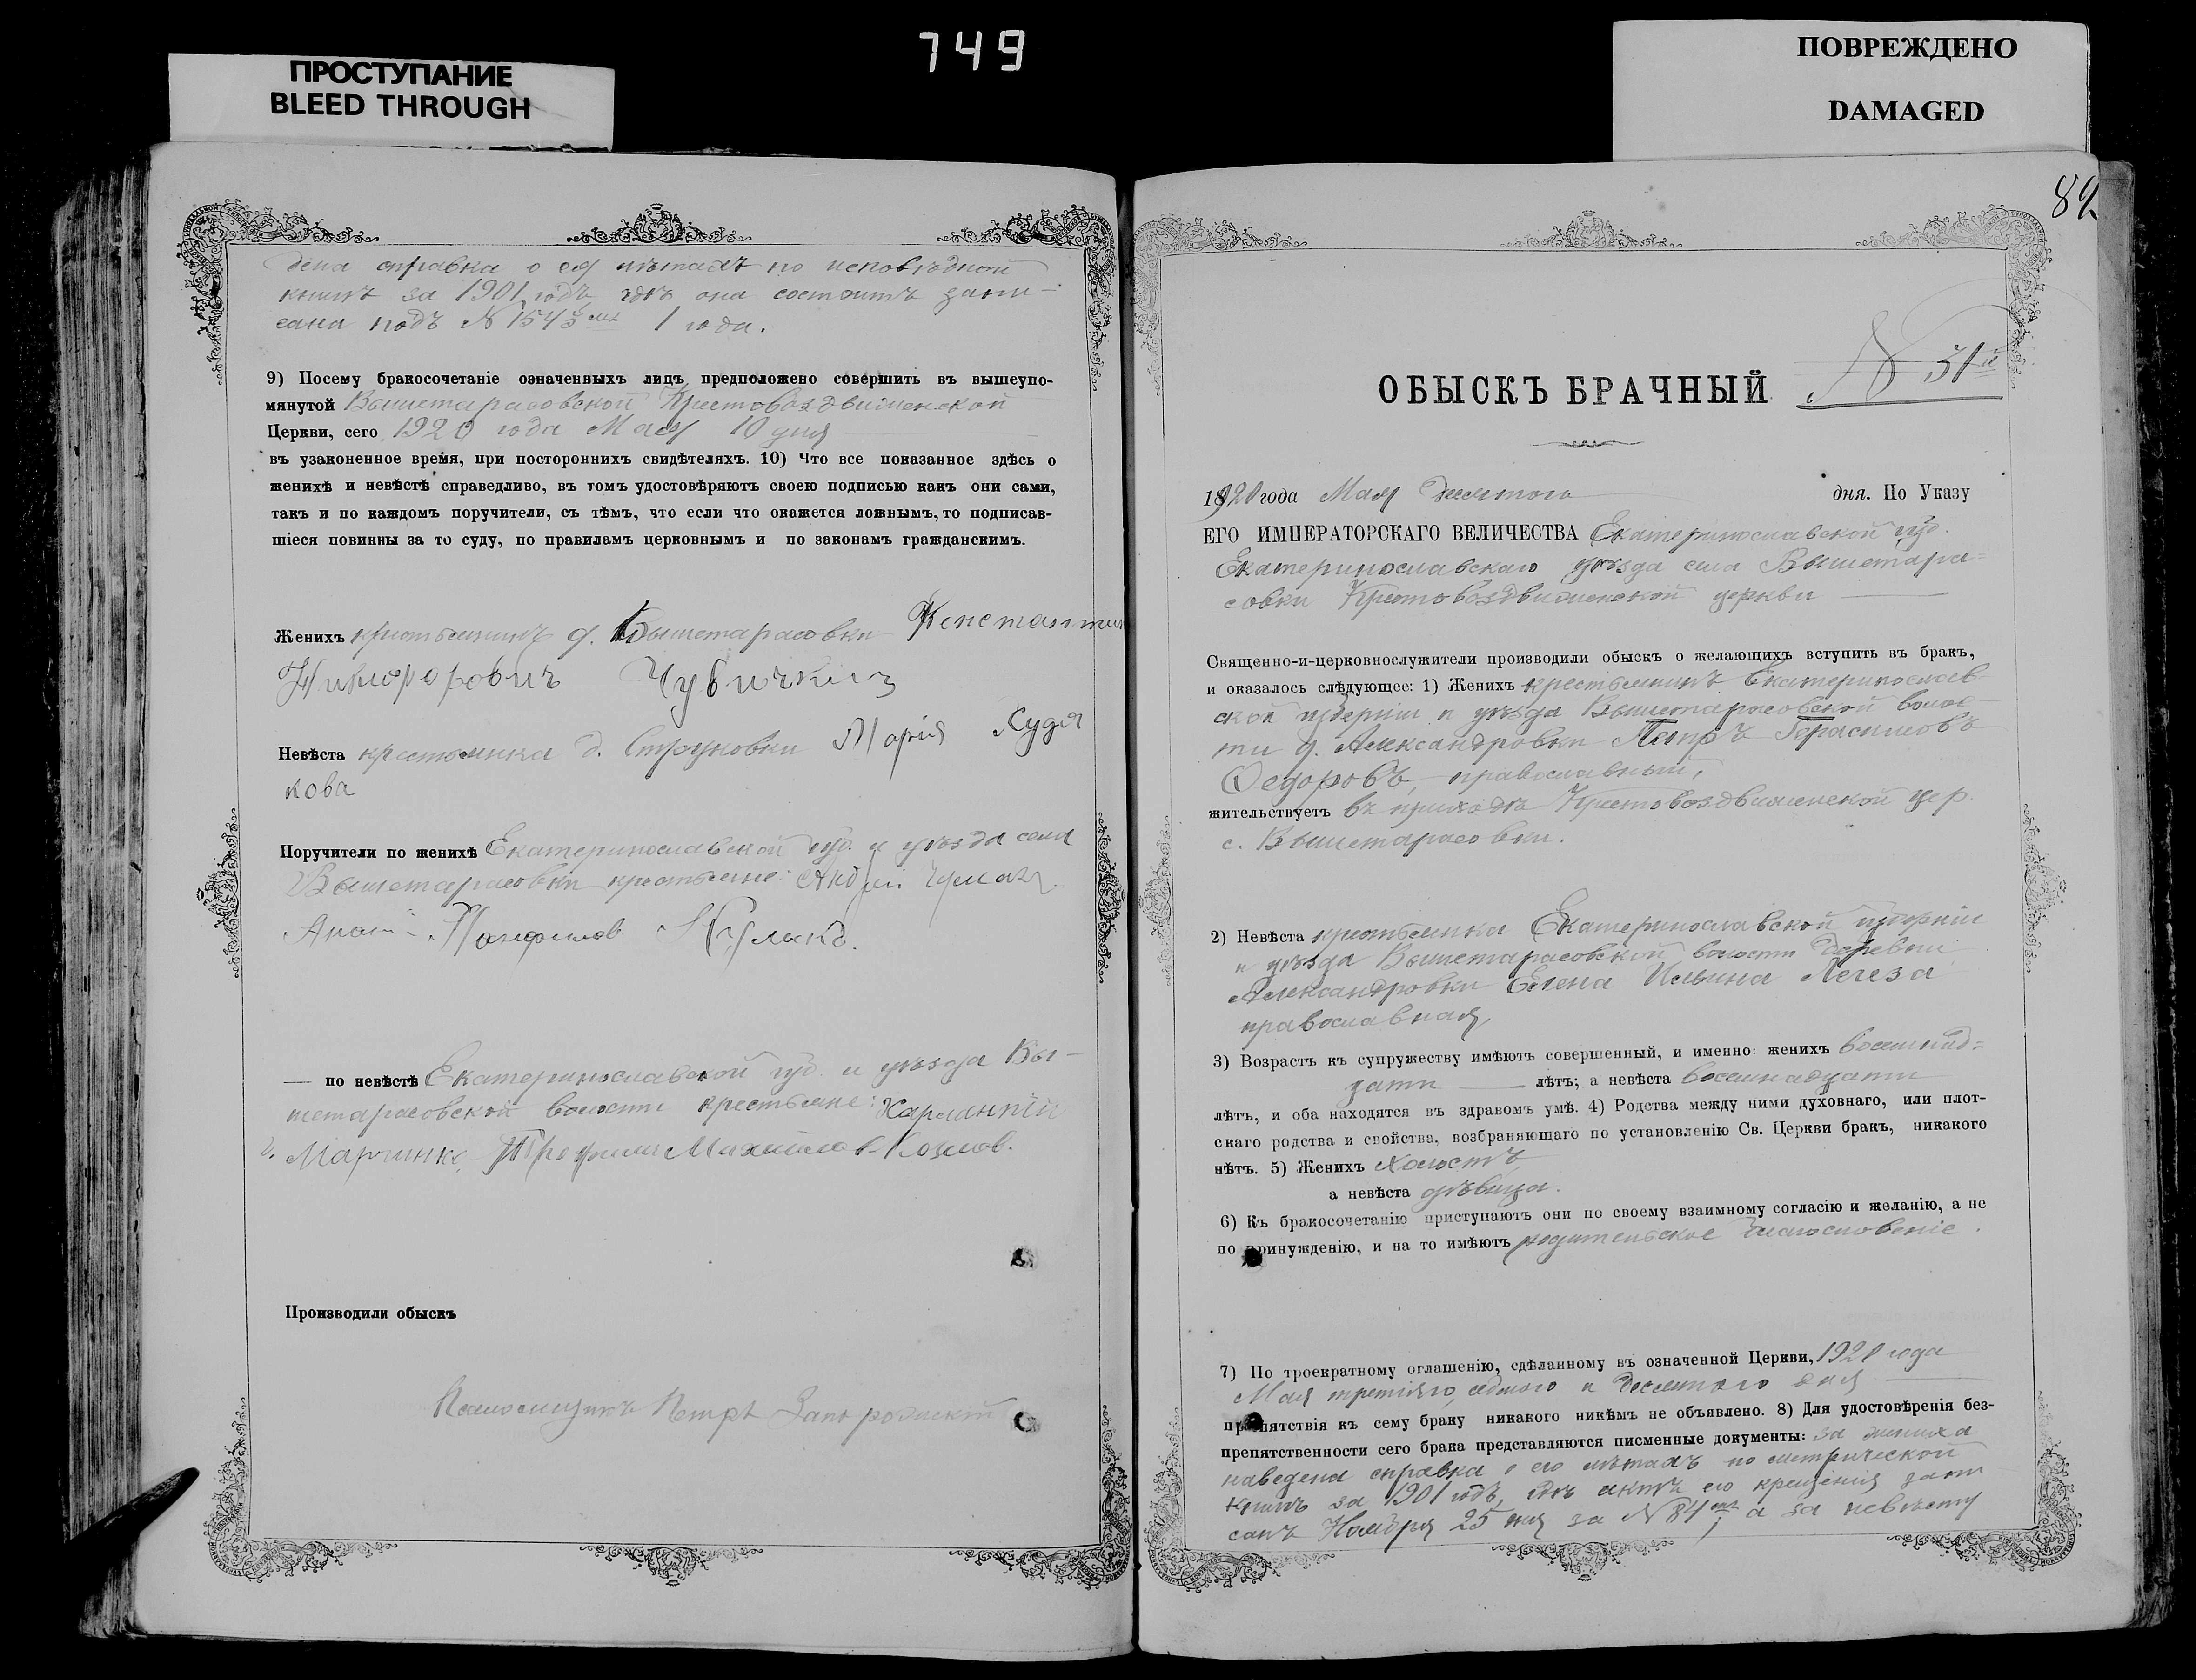 749
ПРОСТУПАНИЕ
BLEED THROUGH
ПОВРЕЖДЕНО
DAMAGED
дена справка о ея лѣтахъ по исповѣдной
книгѣ за 1901 годъ, гдѣ она состоитъ запи-
сана подъ № 1543 1 года.
9) Посему бракосочетаніе означенныхъ лицъ предположено совершить въ вышеупо-
мянутой Вышетарасовской Крестовоздвиженской
Церкви, сего 1920 года Мая 10 дня
въ узаконенное время, при постороннихъ свидѣтеляхъ. 10) Что все показанное здѣсь о
женихѣ и невѣстѣ справедливо, въ томъ удостовѣряютъ своею подписью какъ они сами,
такъ и по каждомъ поручители, съ тѣмъ, что если что окажется ложнымъ, то подписав-
шіеся повинны за то суду, по правиламъ церковнымъ и по законамъ гражданскимъ.
Женихъ крестьянинъ Вышетарасовки Констант
Никифорович
Невѣста крестьянка д. Строуковки Марія Худя
кова
Поручители по женихѣ Екатеринославской губ. и уѣзда села
Вышетарасовки крестьяне: Чумак
Панфилов Кулакъ.
— по невѣстѣ Екатеринославской губ. и уѣзда Вы-
шетарасовской волости крестьяне: Харлампий
Марченко, Трофим Михайлов Козлов.
Производили обыскъ
Псаломщикъ Петръ
82
ОБЫСКЪ БРАЧНЫЙ № 31й
1920 года Мая десятого дня. По Указу
ЕГО ИМПЕРАТОРСКАГО ВЕЛИЧЕСТВА Екатеринославской губ.
Екатеринославскаго уѣзда села Вышетара-
совки Крестовоздвиженской церкви
Священно-и-церковнослужители производили обыскъ о желающихъ вступить въ бракъ,
и оказалось слѣдующее: 1) Женихъ крестьянинъ Екатеринослав-
ской губерніи и уѣзда Вышетарасовской волос-
ти д. Александровки Петръ Герасимовъ
Федоровъ, православный,
жительствуетъ въ приходѣ Крестовоздвиженской цер.
с. Вышетарасовки.
2) Невѣста крестьянка Екатеринославской губерніи
и уѣзда Вышетарасовской волости деревни
Александровки Елена Ильина Легеза
православная,
3) Возрастъ къ супружеству имѣютъ совершенный, и именно: женихъ восемнад-
цати лѣтъ; а невѣста восемнадцати
лѣтъ, и оба находятся въ здравомъ умѣ. 4) Родства между ними духовнаго, или плот-
скаго родства и свойства, возбраняющаго по установленію Св. Церкви бракъ, никакого
нѣтъ. 5) Женихъ холостъ
а невѣста дѣвица.
6) Къ бракосочетанію приступаютъ они по своему взаимному согласію и желанію, а не
по принужденію, и на то имѣютъ родительское благословеніе.
7) По троекратному оглашенію, сдѣланному въ означенной Церкви, 1920 года
Мая третьяго, седмого и десятого дня
препятствія къ сему браку никакого никѣмъ не объявлено. 8) Для удостовѣренія без-
препятственности сего брака представляются писменные документы: за жениха
наведена справка о его лѣтахъ по метрической
книгѣ за 1901 годъ, гдѣ актъ его крещенія запи
санъ Ноября 25 дня за № 84 а за невѣсту